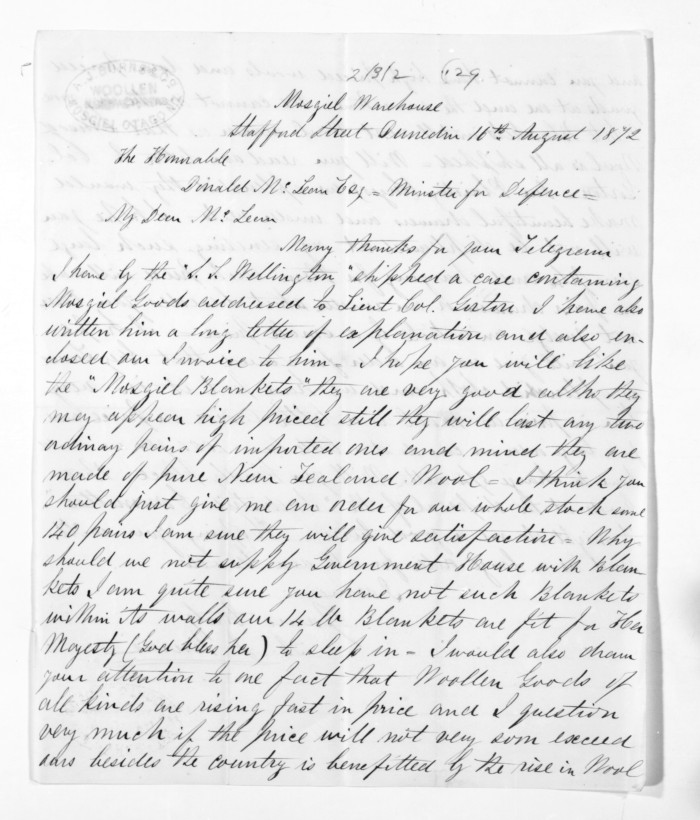 A. J. BURNS & CO
WOOLLEN
MOSGIEL OTAGO
2/3/2 129
Mosgiel Warehouse
Stafford Street Dunedin 16th August 1872
The Honorable
Donald Mc Lean Esq = Minister for Defence =
My Dear Mc Lean
Many thanks for your Telegram
I have by the "S. S. Wellington" shipped a case containing
Mosgiel Goods addressed to Lieut Col. Gorton I have also
written him a long letter of explanation and also en-
closed our Invoice to him - I hope you will like
the "Mosgiel Blankets" they are very good altho they
may appear high priced still they will last any two
ordinary pairs of imported ones and mind they are
made of pure New Zealand Wool = I think you
should just give me an order for our whole stock some
140 pairs I am sure they will give satisfaction = Why
should we not supply Government House with Blan-
kets I am quite sure you have not such Blankets
within its walls our 14 lb Blankets are fit for Her
Majesty (God bless her) to sleep in - I would also draw
your attention to one fact that Woollen Goods of
all kinds are rising fast in price and I question
very much if the price will not very soon exceed
ours besides the country is benefitted by the rise in Wool